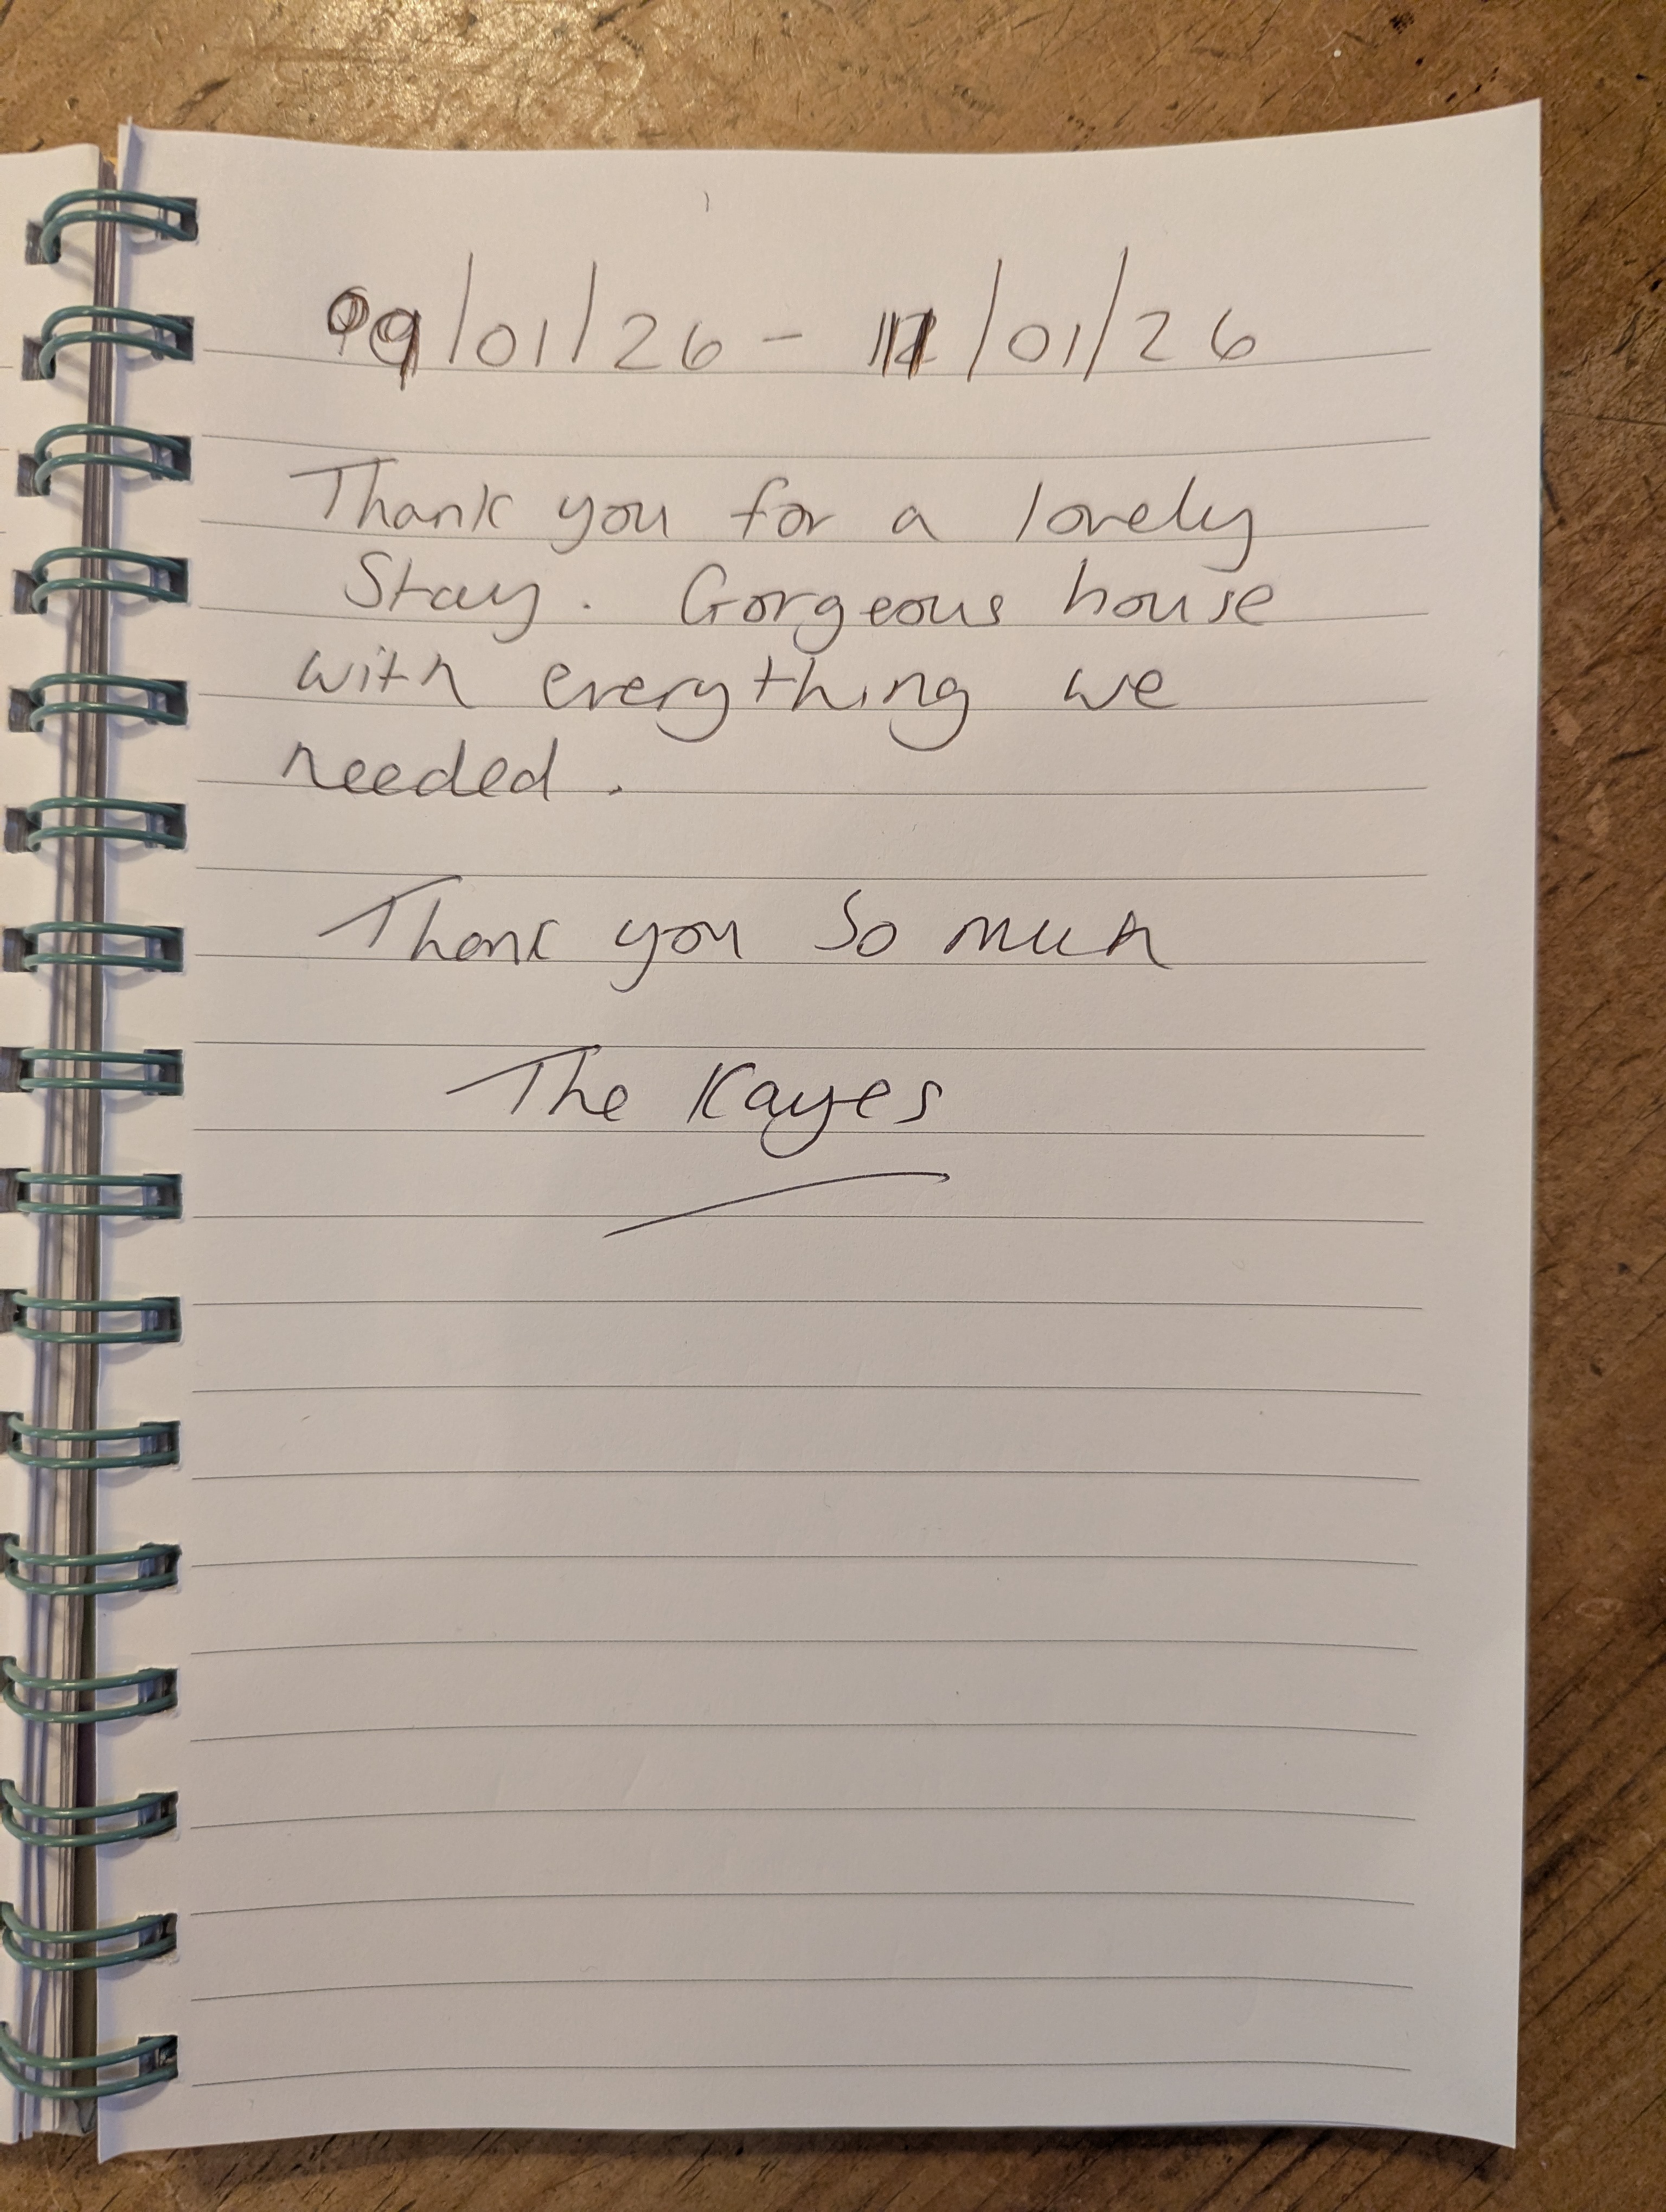 09/01/26 - 11/01/26
Thank you for a lovely
Stay. Gorgeous house
with everything we
needed.
Thank you so much
The Kayes